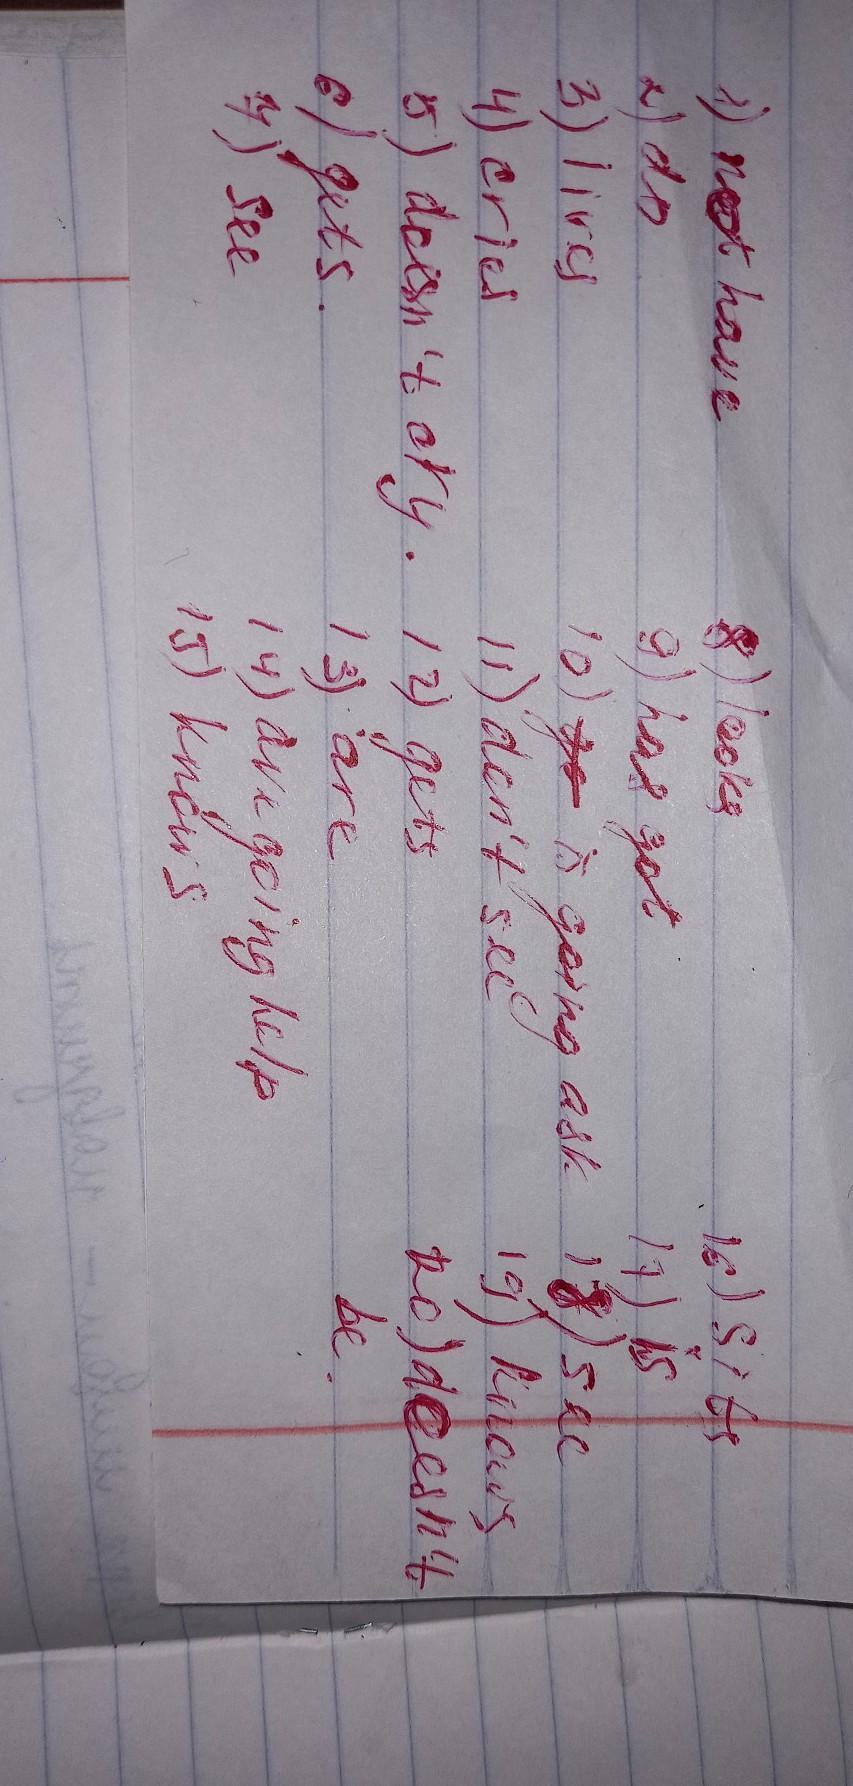 1) not have
2) do
3) lives
4) cries
5) doesn't cry.
6) gets.
7) see
8) looks
9) has got
10) is going ask
11) don't see
12) gets
13) are
14) are going help
15) knows
16) sits
17) is
18) see
19) knows
20) doesn't
be.